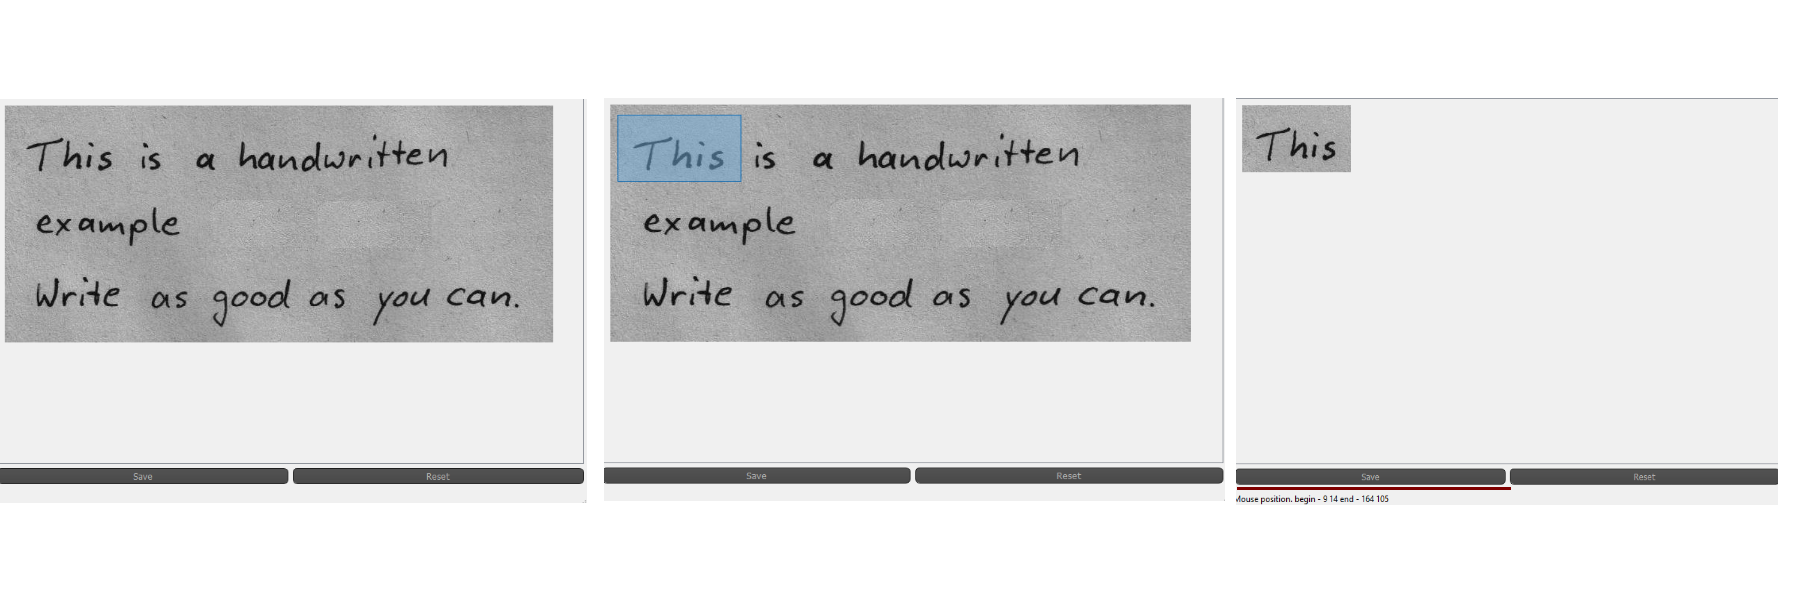 This is a handwritten
example
Write as good as you can.
Save Reset
This is a handwritten
example
Write as good as you can.
Save Reset
This
Save Reset
Mouse position. begin - 9 14 end - 164 105